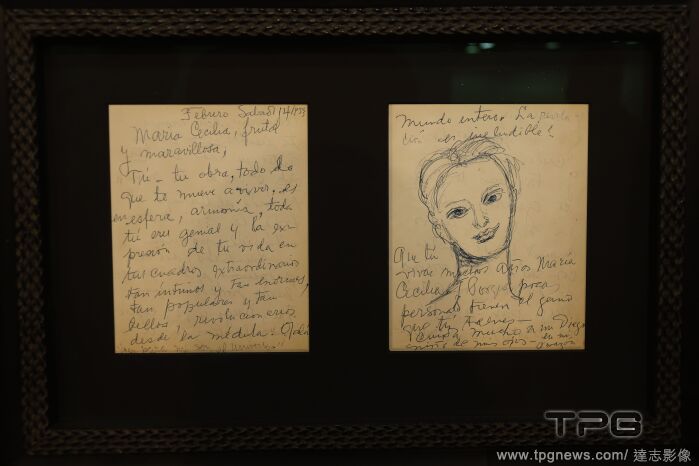 Febrero Sabado 14/1953
Maria Cecilia, fruta
y maravillosa,
Tú - tu obra, todo lo
que te mueve a vivir, es
esfera, armonía, toda
tú eres genial y la ex-
presión de tu vida en
tus cuadros extraordinarios
tan íntimos y tan enormes,
tan populares y tan
bellos, revolucionarios
desde la médula. Ojalá
mundo entero. La
ción es ineludible!
Que tú
vivas muchos años María
Cecilia! Porque pocas
personas tienen el
que tú tienes -
Cuida mucho a mi Diego
de mis ojos - en mi
corazón
TPG
www.tpgnews.com/ 達志影像